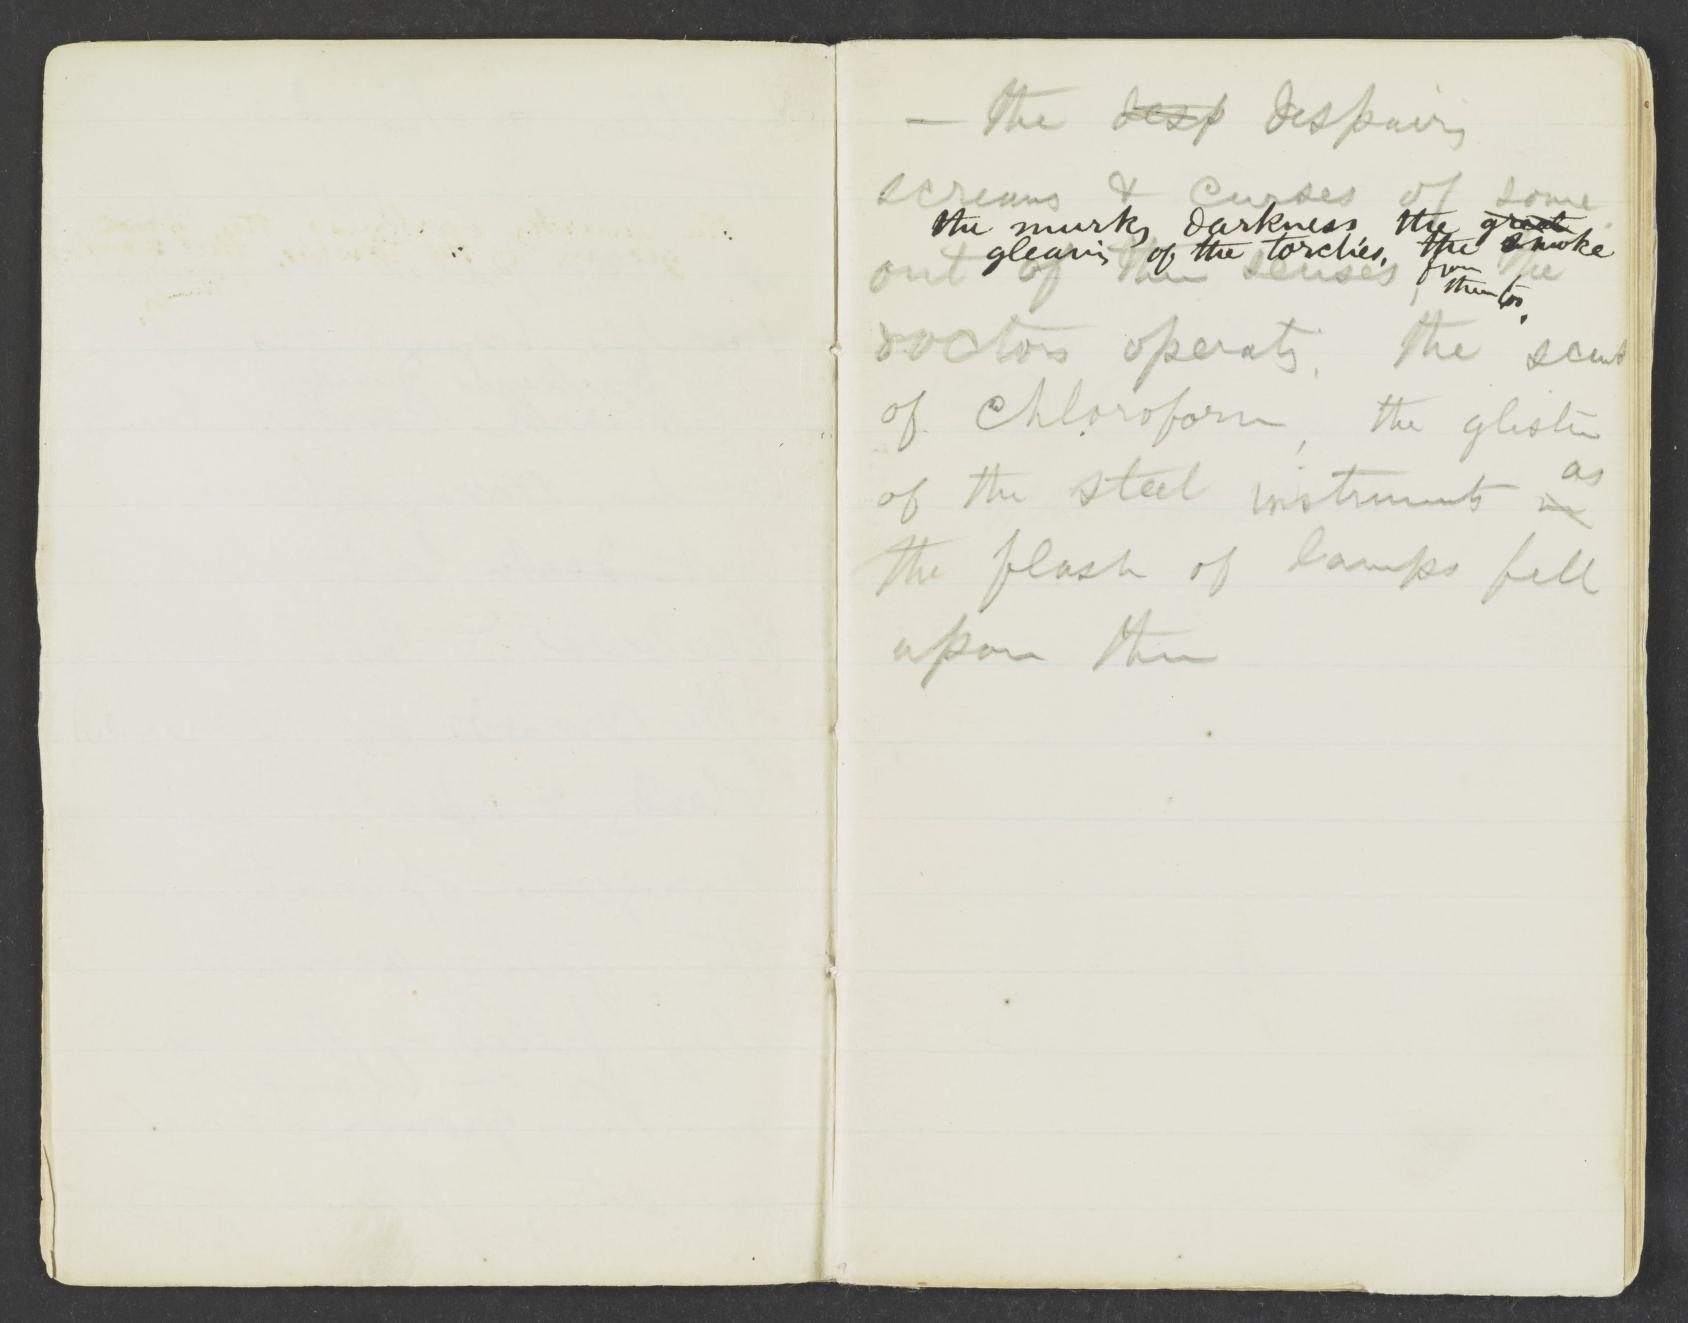 — the desp despairing
screams & curses of some
the murky darkness, the great
gleaming of the torches, the smoke
from
them too,
out of their senses, the
doctors operating, the scent
of chloroform, the glisten
as
of the steel instruments in
the flash of lamps fell
upon them